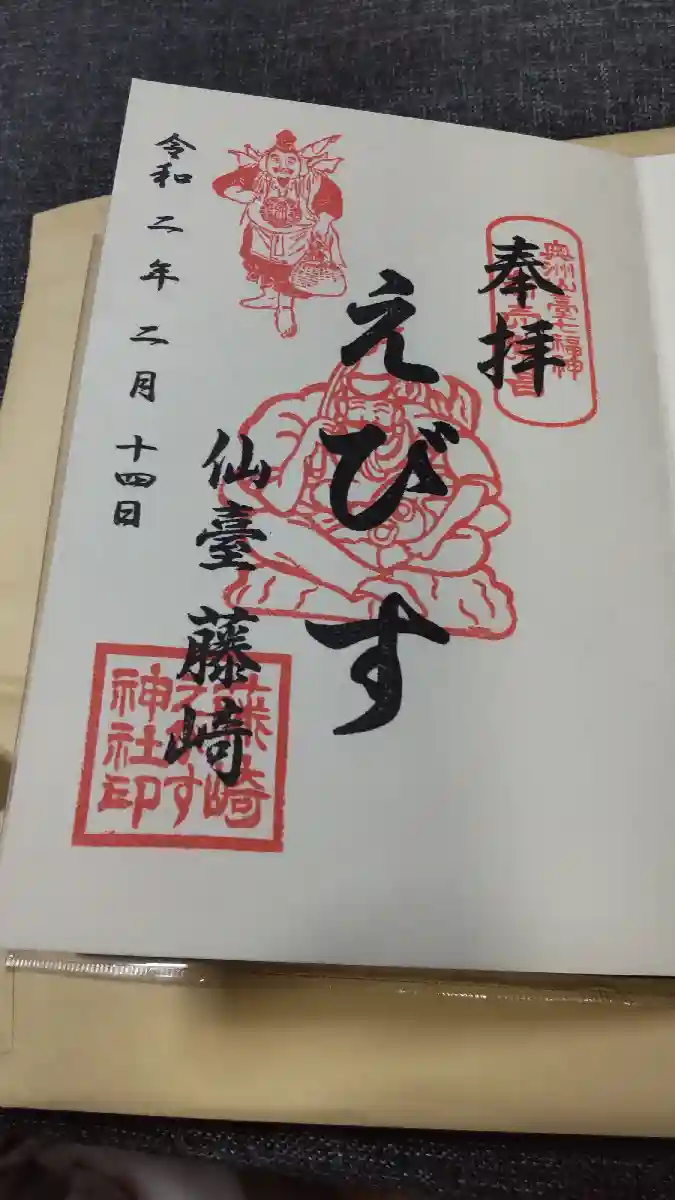 奉拝
奥州仙臺七福神
えびす
仙臺 藤崎
藤崎
えびす
神社印
令和二年二月十四日